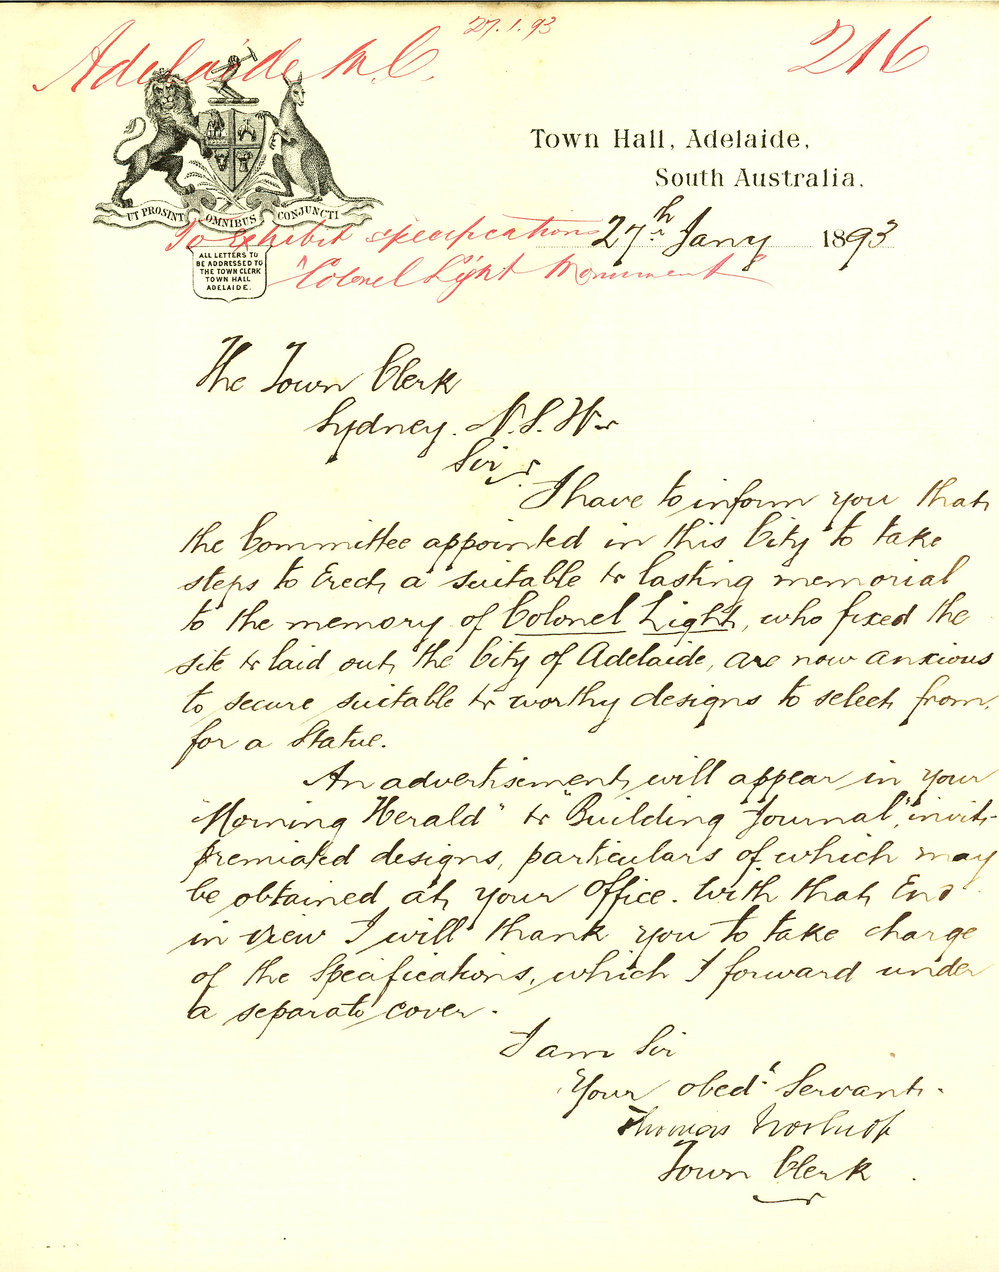 27.1.93
Adelaide M.C.
216
Town Hall, Adelaide,
South Australia.
UT PROSINT OMNIBUS CONJUNCTI
To Exhibit specifications
27th Jany 1893
"Colonel Light Monument"
ALL LETTERS TO
BE ADDRESSED TO
THE TOWN CLERK
TOWN HALL
ADELAIDE.
The Town Clerk
Sydney. N.S.W.
Sir,
I have to inform you that
the Committee appointed in this City to take
steps to Erect a suitable & lasting memorial
to the memory of Colonel Light, who fixed the
site & laid out the City of Adelaide, are now anxious
to secure suitable & worthy designs to select from,
for a Statue.
An advertisement will appear in your
"Morning Herald" & "Building Journal",
premiated designs, particulars of which may
be obtained at your Office. With that End
in view I will thank you to take charge
of the Specifications, which I forward under
a separate cover.
I am Sir
Your obedt Servant.
Thomas Worsnop
Town Clerk